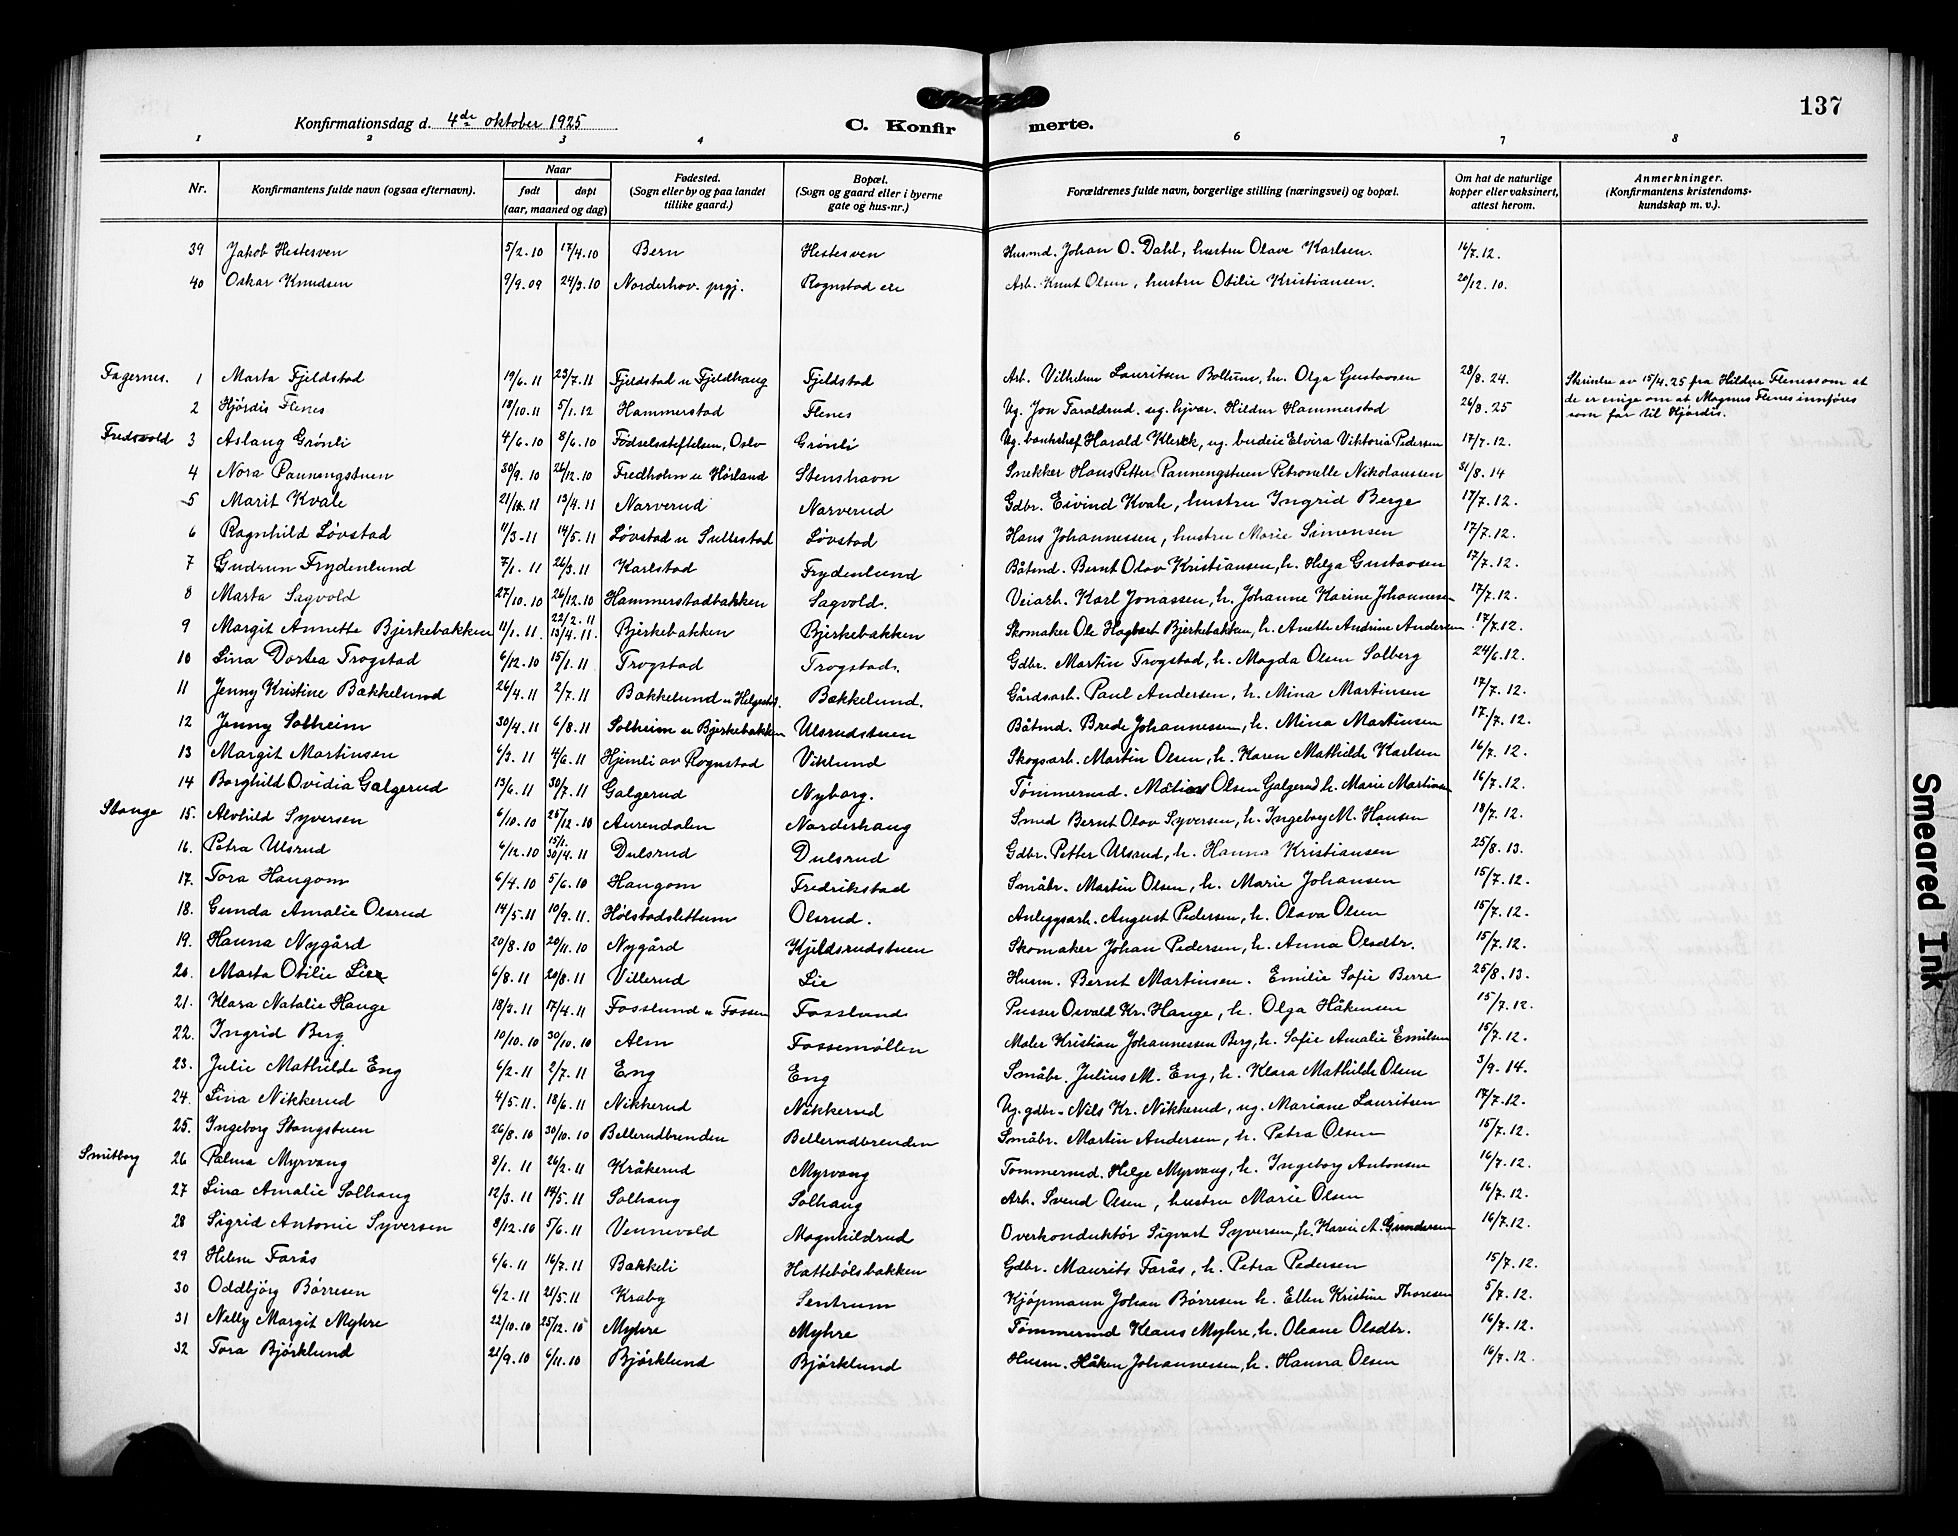 137
Konfirmationsdag d. 4de oktober 1925
C. Konfirmerte.
1 2 3 4 5 6 7 8
Nr. Konfirmantens fulde navn (ogsaa efternavn). Naar født døpt (aar, maaned og dag) Fødested. (Sogn eller by og paa landet tillike gaard.) Bopæl. (Sogn og gaard eller i byerne gate og hus-nr.) Forældrenes fulde navn, borgerlige stilling (næringsvei) og bopæl. Om hat de naturlige kopper eller vaksinert, attest herom. Anmerkninger. (Konfirmantens kristendoms-kundskap m. v.).
39 Jakob Hestesven 5/2.10 17/4.10 Bern Hestesven Husmd. Johan O. Dahl, hustru Olave Karlsen. 16/7.12.
40 Oskar Knudsen 9/9.09 24/3.10 Norderhov. prgj. Rognstad eie Arb. Knut Olsen, hustru Otilie Kristiansen. 20/12.10.
Fagernes. 1 Marta Fjeldstad 19/6.11 23/7.11 Fjeldstad u Fjeldhaug Fjeldstad Arb. Vilhelm Lauritsen Bollum, h. Olga Gustavsen 28/8.24. Skrindre av 15/4.25 fra Hildur Flenes som at
2 Hjördis Flenes 18/10.11 5/1.12 Hammerstad Flenes Ug. Jon Faraldrud. ug. hjvar. Hildur Hammerstad 26/8.25 de er enige om at Magnus Flenes innføres som far til Hjørdis.
Fredsvold 3 Aslaug Grönli 4/6.10 8/6.10 Fødselsstiftelsen, Oslo Grönli Ug. bankchef Harald Klerck, ug. budeie Elvira Viktoria Pedersen 17/7.12.
4 Nora Pannengstuen 30/9.10 26/12.10 Fredholm u Hørland Stenshavn Snekker Hans Petter Pannengstuen Petronelle Nikolaussen 31/8.14
5 Marit Kvale 21/1.11 13/4.11 Narverud Narverud Gdbr. Eivind Kvale, hustru Ingrid Berge 17/7.12.
6 Ragnhild Lövstad 11/3.11 14/5.11 Lövstad u Sullestad Lövstad Hans Johannessen, hustru Marie Simensen 17/7.12.
7 Gudrun Frydenlund 7/1.11 26/3.11 Karlstad Frydenlund Båtmd. Bernt Olav Kristiansen, h. Helga Gustavsen 17/7.12.
8 Marta Sagvold 27/10.10 26/12.10 Hammerstadbakken Sagvold. Veiarb. Karl Jonassen, h. Johanne Karine Johannesen 17/7.12.
9 Margit Annette Bjerkebakken 11/1.11. 22/2.11 13/4.11. Bjerkebakken Bjerkebakken Skomaker Ole Hagbart Bjerkebakken, h. Anette Andrine Andersen 17/7.12.
10 Lina Dortea Trogstad 6/12.10 15/1.11 Trogstad Trogstad. Gdbr. Martin Trogstad, h. Magda Olsen Solberg 24/6.12.
11 Jenny Kristine Bakkelund 26/4.11 2/7.11 Bakkelund u Helgestad. Bakkelund. Gårdsarb. Paul Andersen, h. Mina Martinsen 17/7.12.
12 Jenny Solheim 30/4.11 6/8.11 Solheim u Bjerkebakken Ulsrudstuen Båtmd. Brede Johannessen, h. Mina Martinsen 17/7.12.
13 Margit Martinsen 6/3.11 4/6.11 Hjemli av Rognstad Viklund Skogsarb. Martin Olsen, h. Karen Mathilde Karlsen 16/7.12.
14 Borghild Ovidia Galgerud 13/6.11 30/7.11 Galgerud Nyborg. Tømmermd. Matias Olsen Galgerud h. Marie Martinsen 16/7.12.
Stange 15. Alvhild Syversen 6/10.10 25/12.10 Aurendalen Norderhaug Smed Bernt Olav Syversen, h. Ingeborg M. Hansen 18/7.12.
16. Petra Ulsrud 6/12.10 15/1. 30/4.11 Dulsrud Dulsrud Gdbr. Petter Ulsrud, h. Hanna Kristiansen 25/8.13.
17. Tora Haugom 6/4.10 5/6.10 Haugom Fredrikstad Småbr. Martin Olsen, h. Marie Johansen 15/7.12.
18. Gunda Amalie Olsrud 14/5.11 10/9.11. Hølstadslettum Olsrud. Anleggsarb. August Pedersen, h. Olava Olsen 15/7.12.
19. Hanna Nygård 20/8.10 20/11.10 Nygård Kjeldsrudstuen Skomaker Johan Pedersen, h. Anna Olsdtr. 15/7.12.
20. Marta Otilie Lie 6/8.11 20/8.11 Villerud Lie Husm. Bernt Martinsen. Emilie Sofie Berre 25/8.13.
21. Klara Natalie Hauge 18/3.11 17/4.11 Fosslund u Fossen Fosslund Pusser Osvald Kr. Hauge, h. Olga Håkensen 15/7.12.
22. Ingrid Berg 10/10.10 30/10.10 Alm Fossemøllen Maler Kristian Johannessen Berg, h. Sofie Amalie Emilsen 15/7.12.
23. Julie Mathilde Eng 6/2.11 2/7.11 Eng Eng Småbr. Julius M. Eng, h. Klara Mathilde Olsen 3/9.14.
24. Lina Nikkerud 4/5.11. 18/6.11 Nikkerud Nikkerud Ug. gdbr. Nils Kr. Nikkerud, ug. Mariane Lauritsen 17/7.12.
25. Ingeborg Stangstuen 26/8.10 30/10.10 Bellerudbrenden Bellerudbrenden Småbr. Martin Andersen, h. Petra Olsen 15/7.12.
Smitborg 26 Palma Myrvang 8/1.11 26/2.11 Kråkerud Myrvang Tømmermd. Helge Myrvang, h. Ingeborg Antonsen 16/7.12.
27 Lina Amalie Solhaug 12/3.11 14/5.11 Solhaug Solhaug Arb. Svend Olsen, hustru Marie Olsen 16/7.12.
28 Sigrid Antonie Syversen 8/12.10 5/6.11 Vennevold Magnhildrud Overkonduktör Sigvart Syversen, h. Karen A. Gundersen 16/7.12.
29 Helene Farås 6/6.11 16/7.11 Bakkeli Hattebölsbakken Gdbr. Maurits Farås, h. Petra Pedersen 15/7.12.
30 Oddbjörg Börresen 6/2.11 21/5.11 Kraby Sentrum Kjöpmann Johan Börresen h. Ellen Kristine Thoresen 5/7.12.
31 Nelly Margit Myhre 22/10.10 25/12.10 Myhre Myhre Tømmermd Klaus Myhre, h. Oleane Olsdtr. 16/7.12.
32 Tora Björklund 21/9.10 6/11.10 Björklund Björklund Husm. Håken Johannessen, h. Hanna Olsen 16/7.12.
Smeared Ink